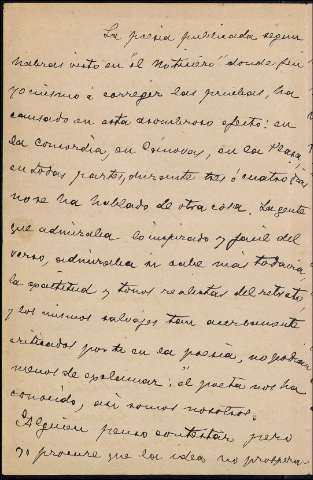 La poesia publicada segun
habras visto en "el Noticiero" donde fui
yo mismo á corregir las pruebas, ha
causado en esta asombroso efecto: en
la Concordia, en Cánovas, en la Plaza,
en todas partes, durante tres ó cuatro dias
no se ha hablado de otra cosa. La gente
que admiraba lo inspirado y facil del
verso, admiraba si cabe más todavia
la exactitud y tonos realistas del retrato,
y los mismos salvajes tan acerbamente
criticados por ti en la poesia, no podian
menos de exclamar: el poeta nos ha
conocido, asi somos nosotros.
Alguien penso contestar pero
yo procure que la idea no prospera-